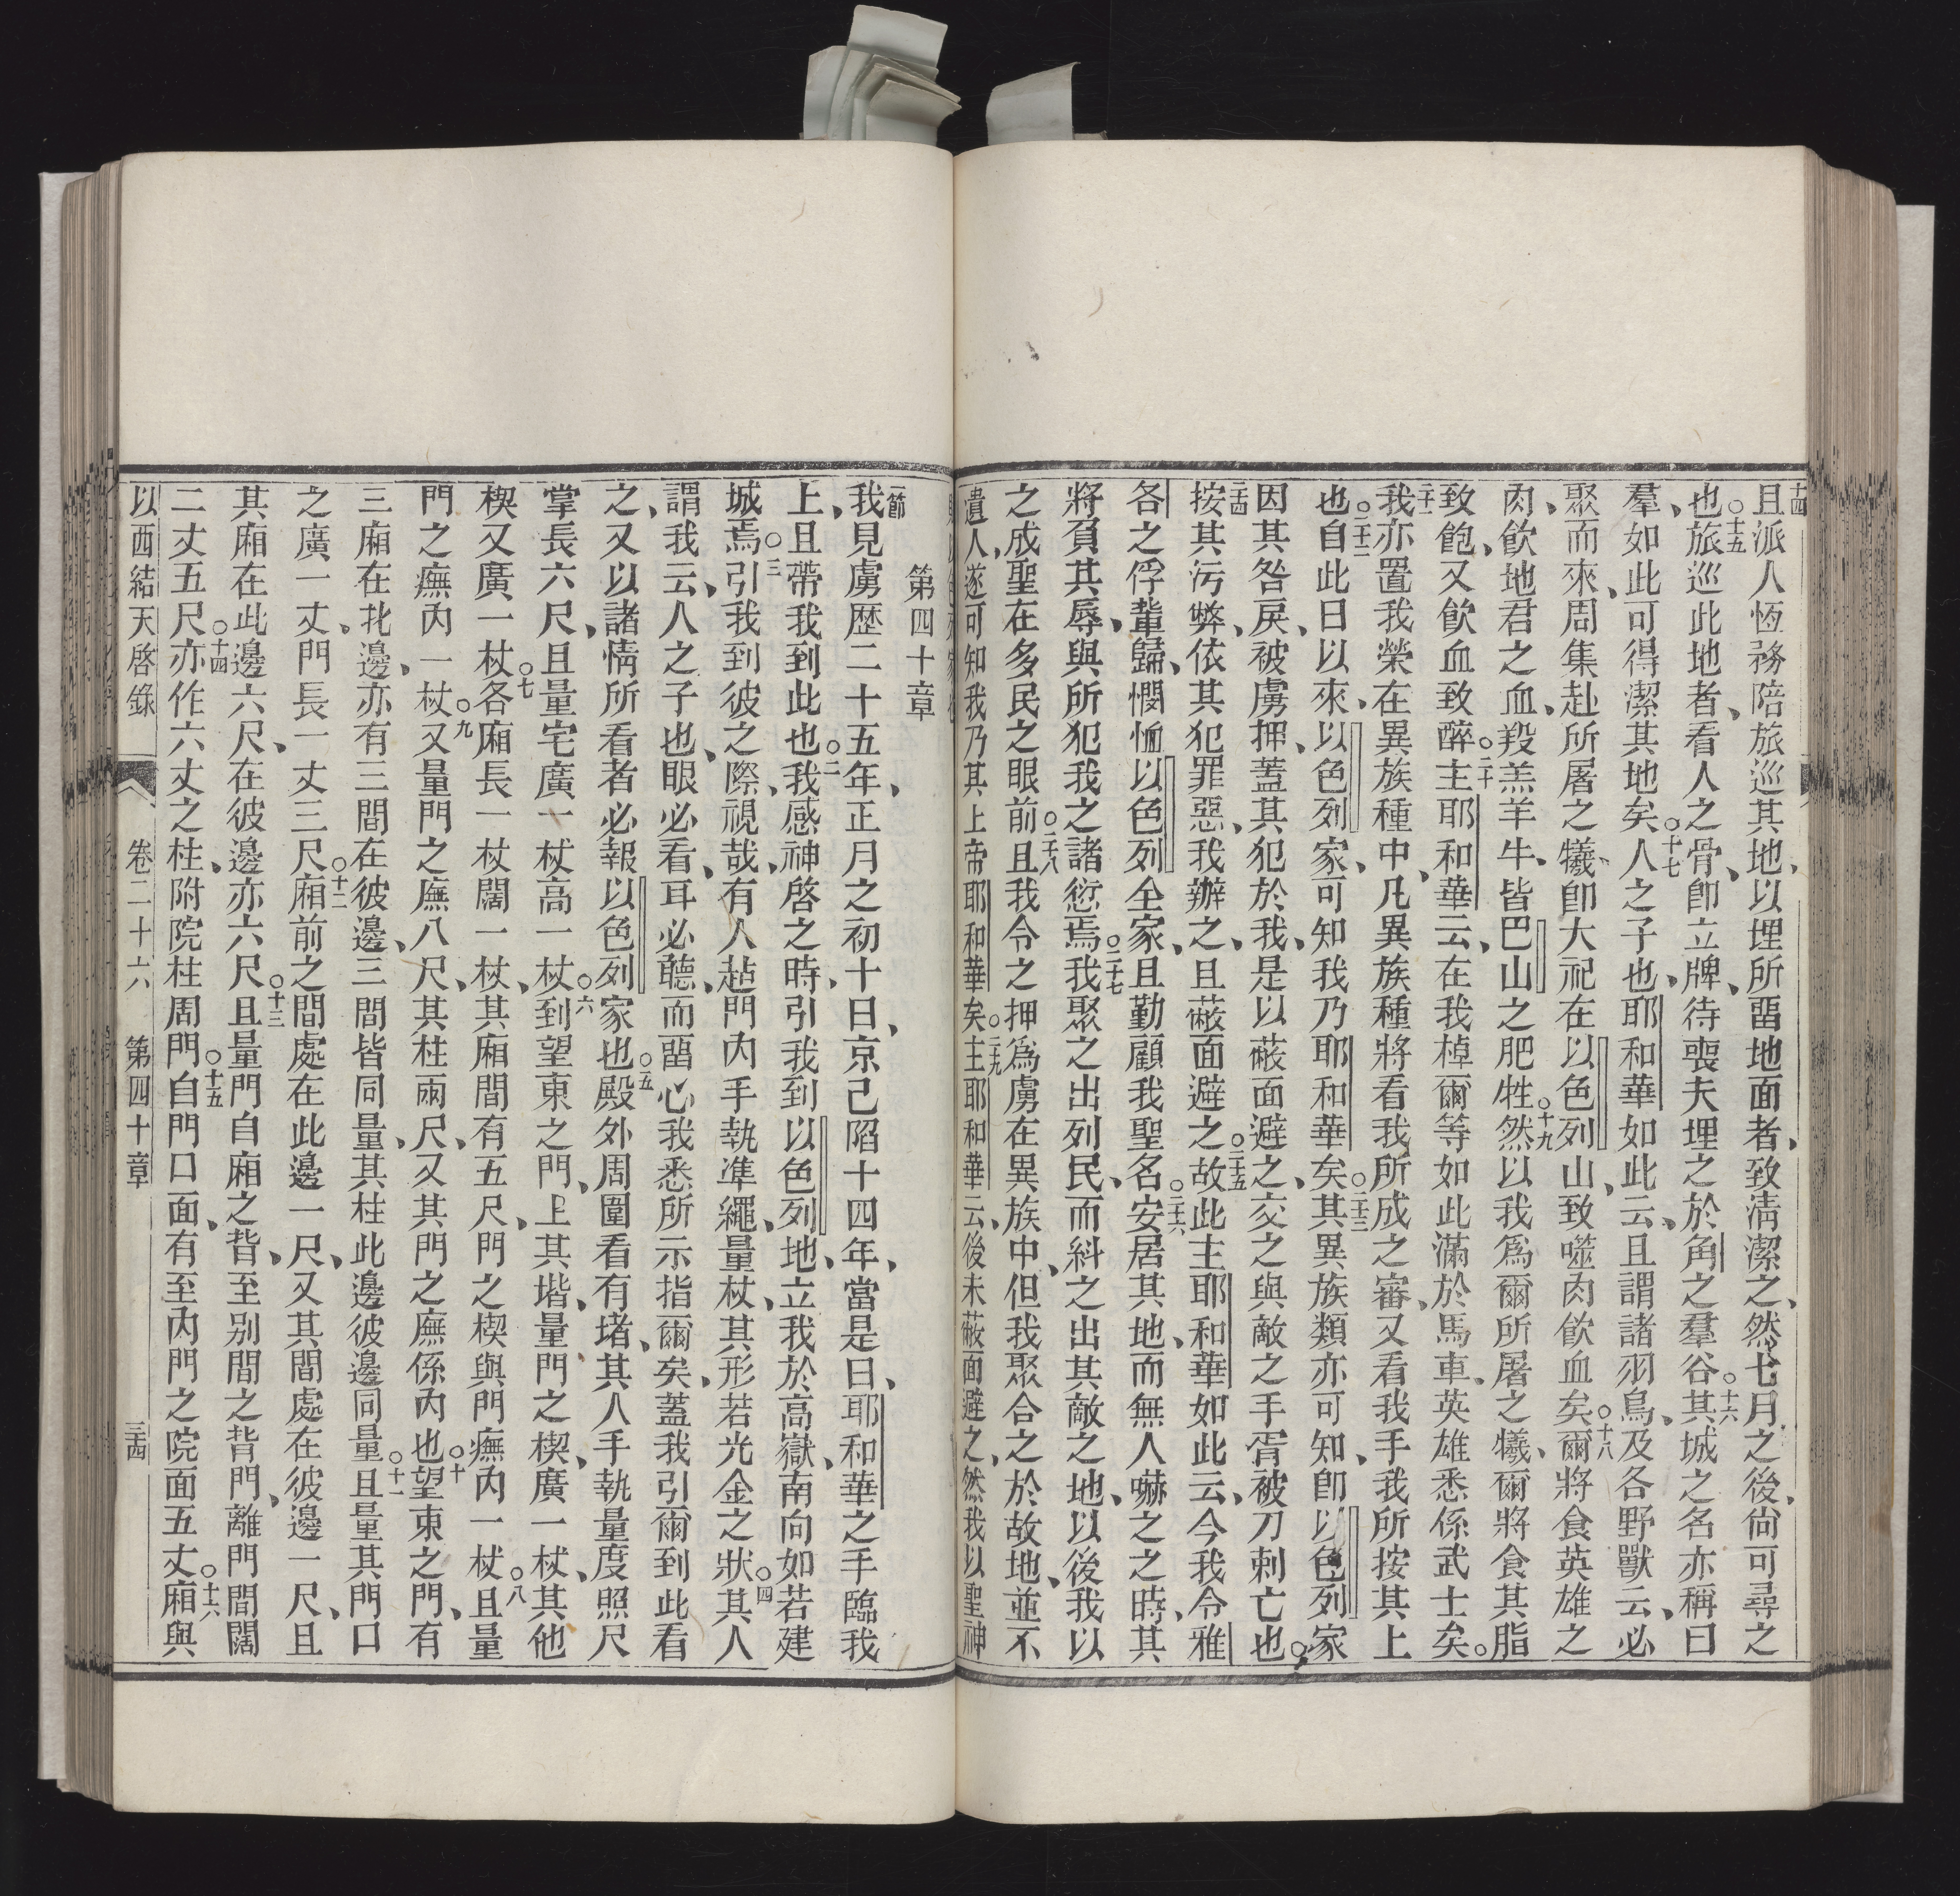 十四
且派人恆務陪旅巡其地、以埋所畱地面者、致淸潔之、然七月之後、尙可尋之
也○十五旅巡此地者、看人之骨、卽立牌、待喪夫埋之於角之羣谷○十六其城之名亦稱曰
羣、如此可得潔其地矣○十七人之子也、耶和華如此云、且謂諸羽鳥、及各野獸云、必
聚而來、周集赴所屠之犧、卽大祀在以色列山、致噬肉飮血矣○十八爾將食英雄之
肉、飮地君之血、羖羔羊牛、皆巴山之肥牲○十九然以我爲爾所屠之犧、爾將食其脂
致飽、又飮血致醉○二十主耶和華云、在我棹爾等如此滿於馬車、英雄悉係武士矣。
二十一
我亦置我榮在異族種中、凡異族種將看我所成之審、又看我手我所按其上
也○二十二自此日以來、以色列家、可知我乃耶和華矣○二十三其異族類亦可知、卽以色列家
因其咎戾、被虜押、蓋其犯於我、是以蔽面避之、交之與敵之手、胥被刀刺亡也。
二十四
按其污弊、依其犯罪惡、我辦之、且蔽面避之○二十五故此主耶和華如此云、今我令雅
各之俘輩歸、憫恤以色列全家、且勤顧我聖名○二十六安居其地、而無人嚇之之時、其
將負其辱、與所犯我之諸愆焉○二十七我聚之出列民、而糾之出其敵之地、以後我以
之成聖在多民之眼前○二十八且我令之押爲虜在異族中、但我聚合之於故地、並不
遺人、遂可知我乃其上帝耶和華矣○二十九主耶和華云、後未蔽面避之、然我以聖神
第四十章
一節
我見虜歷二十五年、正月之初十日、京己陷十四年、當是日、耶和華之手臨我
上、且帶我到此也○二我感神啓之時、引我到以色列地、立我於高嶽、南向如若建
城焉○三引我到彼之際、視哉、有人趈門內、手執準繩、量杖、其形若光金之狀○四其人
謂我云、人之子也、眼必看、耳必聽、而畱心我悉所示指爾矣、蓋我引爾到此看
之、又以諸情所看者、必報以色列家也○五殿外周圍看有堵、其人手執量度照尺
掌長六尺、且量宅廣一杖高一杖○六到望東之門、上其堦、量門之楔、廣一杖、其他
楔又廣一杖○七各廂長一杖闊一杖、其廂間有五尺、門之楔與門㢝內一杖○八且量
門之㢝內一杖○九又量門之廡八尺、其柱兩尺、又其門之廡係內也○十望東之門、有
三廂在此邊、亦有三間在彼邊、三間皆同量、其柱此邊彼邊同量○十一且量其門口
之廣一丈、門長一丈三尺○十二廂前之間處在此邊一尺、又其間處在彼邊一尺、且
其廂在此邊六尺、在彼邊亦六尺○十三且量門自廂之背、至別間之背門、離門間闊
二丈五尺○十四亦作六丈之柱、附院柱周門○十五自門口面、有至內門之院面五丈○十六廂與
以西結天啓錄 卷二十六 第四十章 三十四